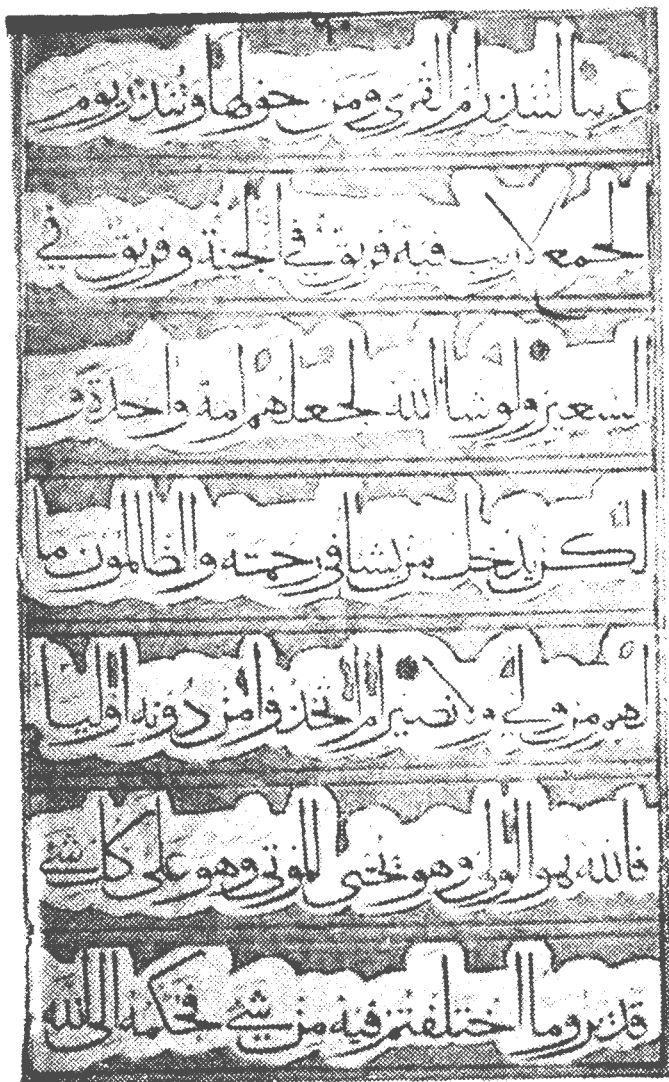 عربيا لتنذر ام القرى ومن حولها وتنذر يوم
الجمع لا ريب فيه فريق في الجنة وفريق في
السعير ولو شا الله لجعلهم امة واحدة و
لكن يدخل من يشا في رحمته والظالمون ما
لهم من ولي ولا نصير ام اتخذوا من دونه اوليا
فالله هو الولي وهو يحيى الموتى وهو على كل شي
قدير وما اختلفتم فيه من شي فحكمه الى الله